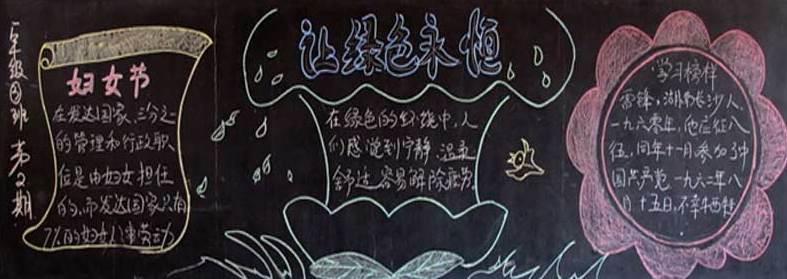 年级四班 第2期
妇女节
在发达国家,三分之一
的管理和行政职
位是由妇女担任
的,而发达国家只有
7%的妇女从事劳动
让绿色永恒
在绿色的环境中,人
们感觉到宁静 温柔
舒适 容易解除疲劳
学习榜样
雷锋,湖南长沙人,
一九六零年,他应征入
伍,同年十一月参加了中
国共产党,一九六二年八
月十五日,不幸牺牲